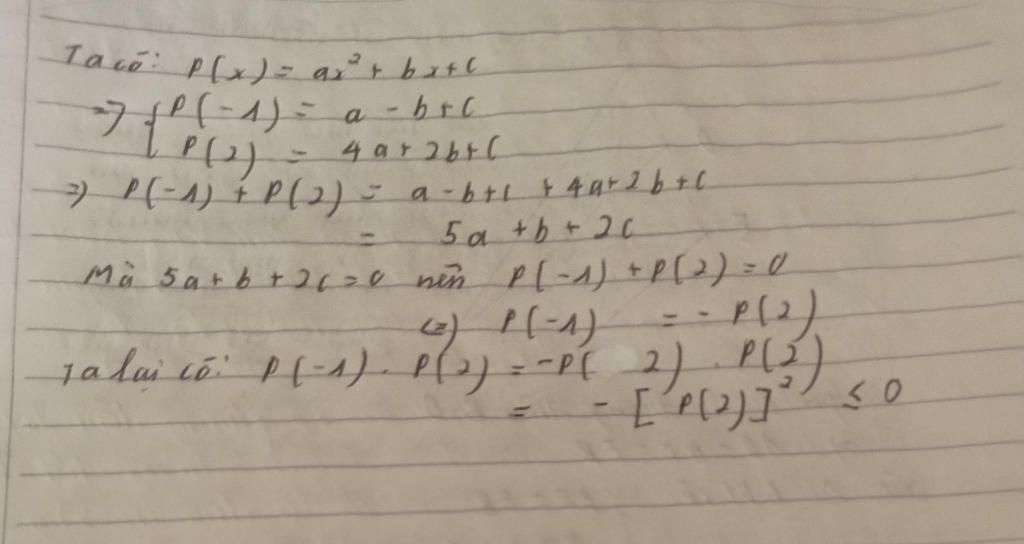 Ta có: P(x) = ax² + bx + c
=> { P(-1) = a - b + c
P(2) = 4a + 2b + c
=> P(-1) + P(2) = a - b + c + 4a + 2b + c
= 5a + b + 2c
Mà 5a + b + 2c = 0 nên P(-1) + P(2) = 0
<=> P(-1) = - P(2)
Ta lại có: P(-1) . P(2) = -P( 2) . P(2)
= - [P(2)]² ≤ 0